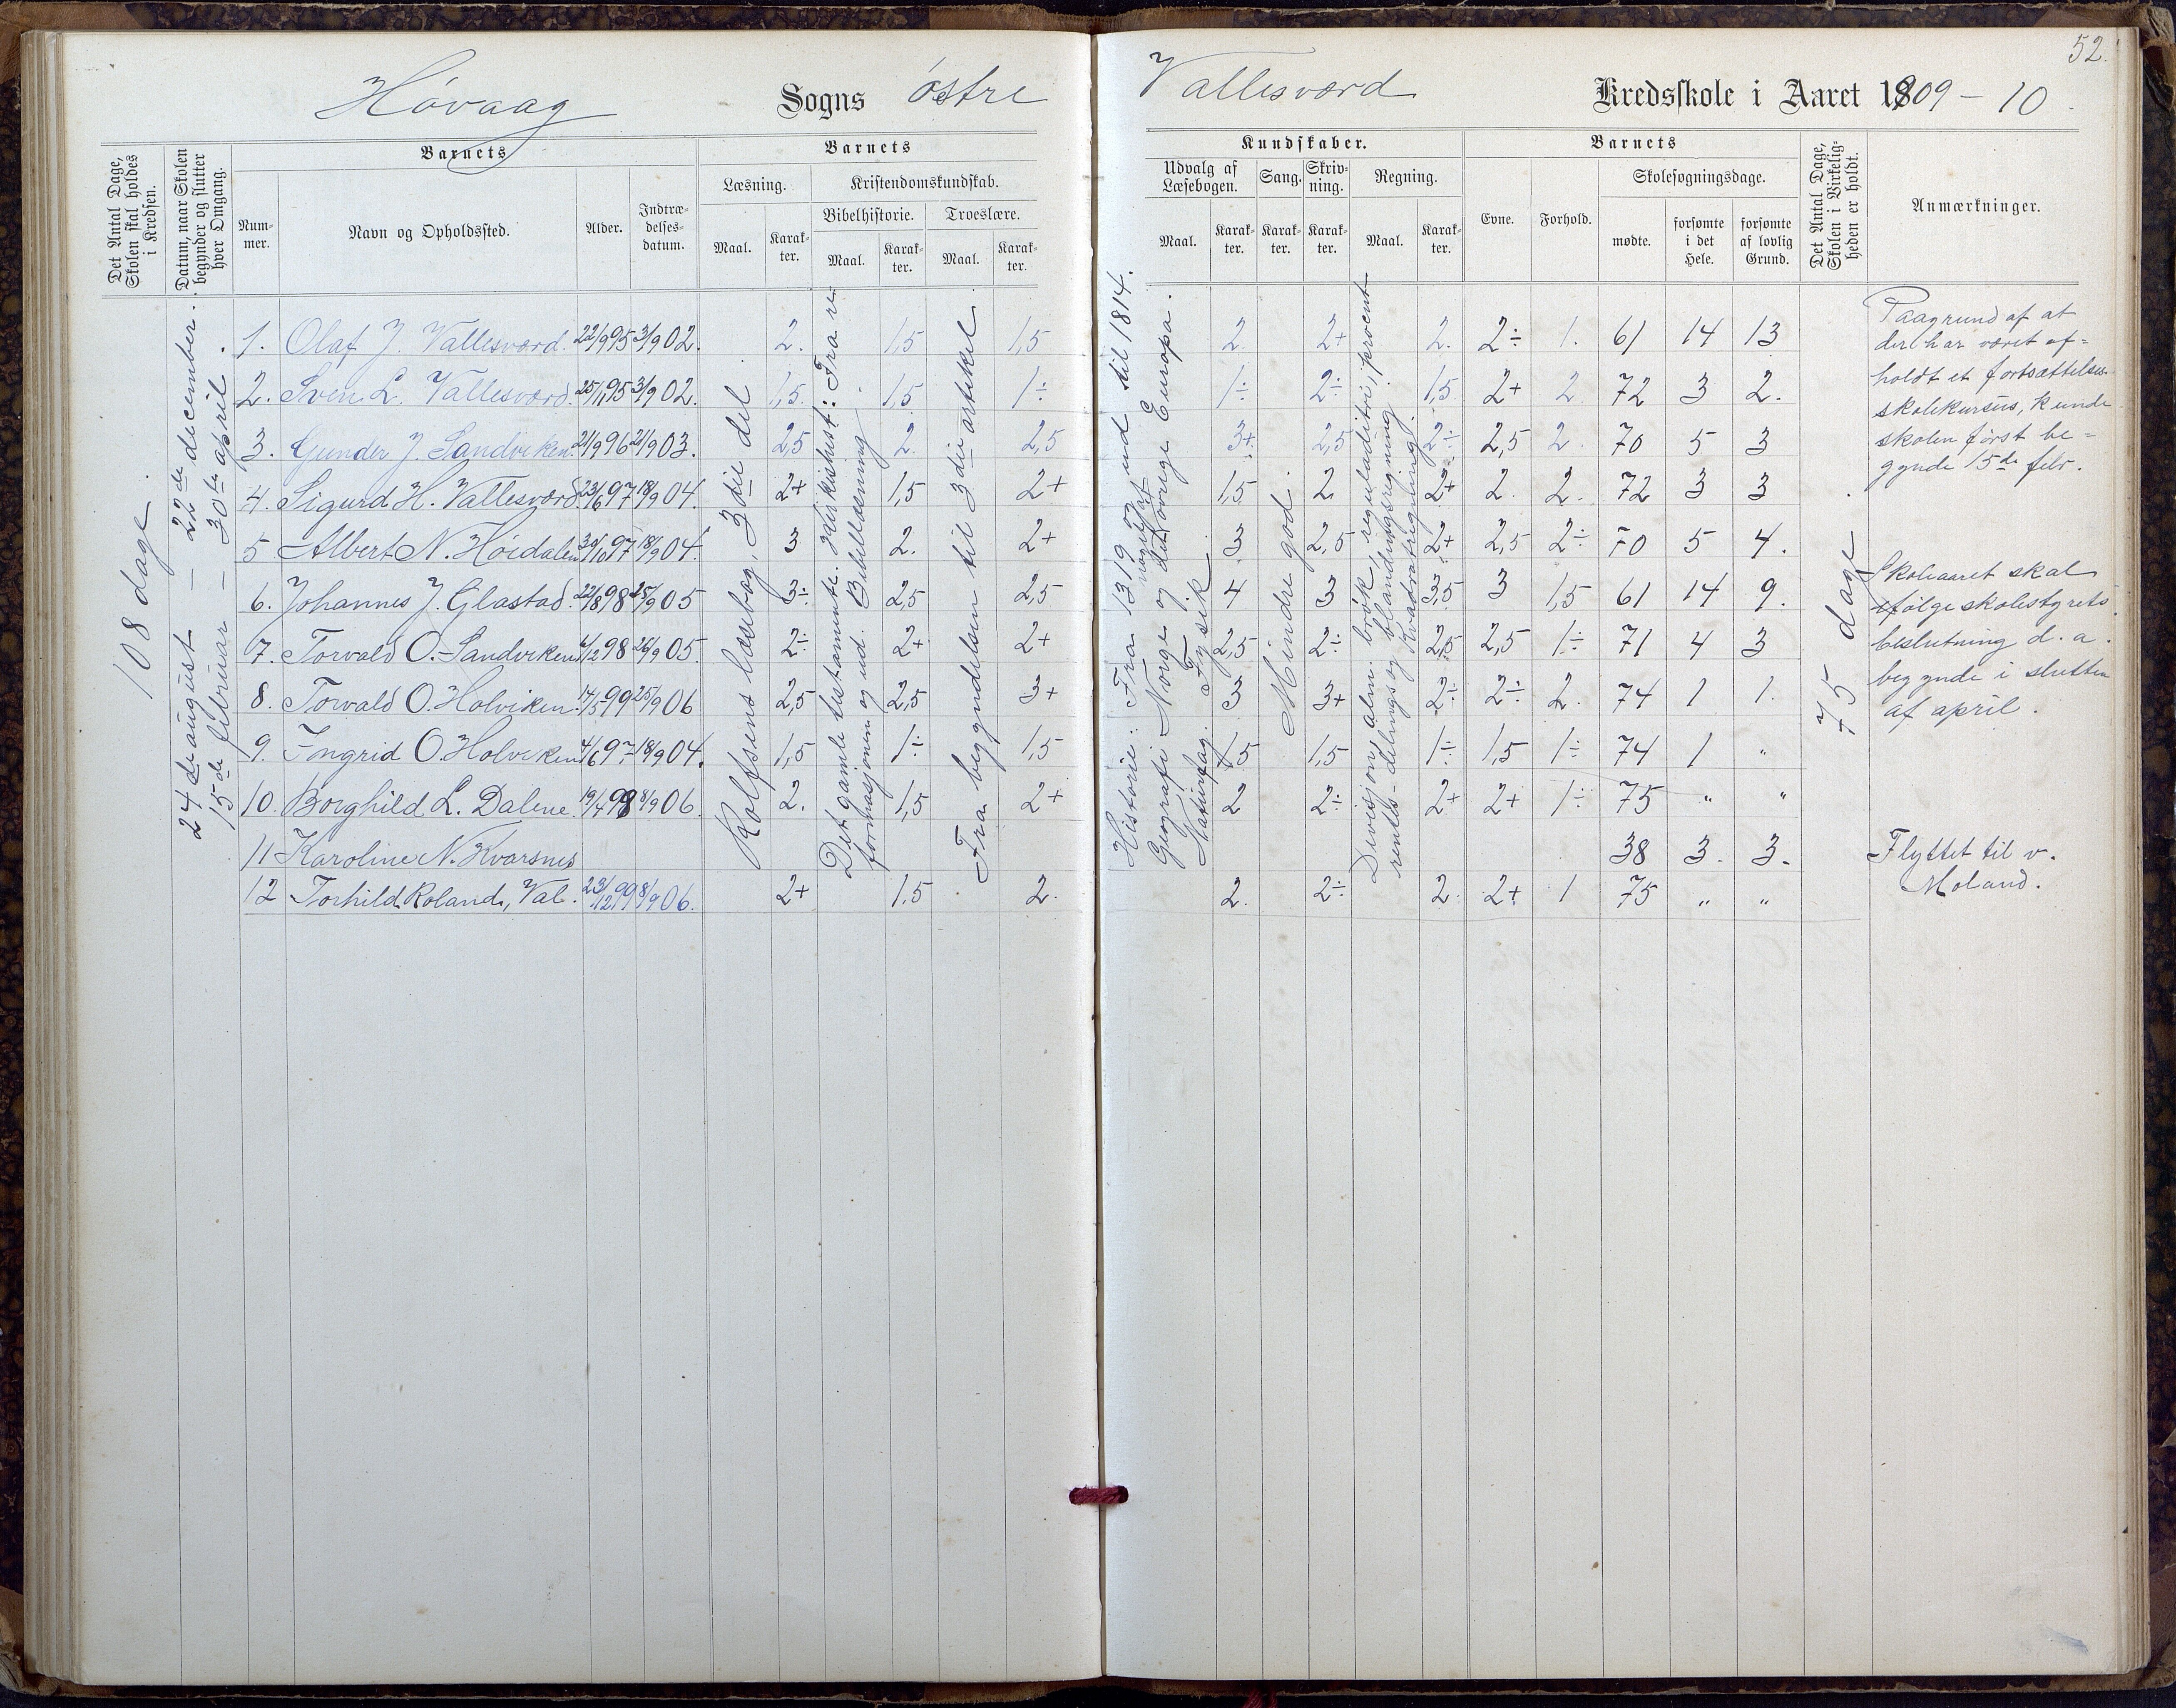 52.
Høvaag Sogns østre
Vallesværd Kredsskole i Aaret 1909-10.
Det Antal Dage, Skolen skal holdes i Kredsen.
Datum, naar Skolen begynder og slutter hver Omgang.
Barnets
Nummer.
Navn og Opholdssted.
Alder.
Indtrædelsesdatum.
Barnets
Læsning.
Maal.
Karakter.
Kristendomskundskab.
Bibelhistorie.
Maal.
Karakter.
Troeslære.
Maal.
Karakter.
Kundskaber.
Udvalg af Læsebogen.
Maal.
Karakter.
Sang.
Karakter.
Skrivning.
Karakter.
Regning.
Maal.
Karakter.
Barnets
Evne.
Forhold.
Skolesøgningsdage.
mødte.
forsømte i det Hele.
forsømte af lovlig Grund.
Det Antal Dage, Skolen i Virkeligheden er holdt.
Anmærkninger.
108 dage.
24 de august – 22 de december.
15 de februar – 30 te april.
Rolfsens læsebog, 3die del
Det gamle testamente. Kirkehist: Fra re-
formasjonen og ud. Bibellæsning.
Fra begyndelsen til 3die artikel
Historie: Fra 1319 og ud til 1814.
Geografi Norge og det øvrige Europa.
Naturfag. Fysik.
Mindre god.
Devisjon, alm. brøk, reguladitri, procent
rentes- delings og blandingsregning.
Kvadratregning.
75 dage.
1. Olaf J. Vallesværd. 22/9 95 3/9 02. 2. 1,5 1,5 2. 2+ 2. 2÷ 1. 61 14 13
2. Sven L. Vallesværd. 25/11 95 3/9 02. 1,5. 1,5 1÷ 1÷ 2÷ 1,5 2+ 2 72 3 2.
3. Gunder J. Sandviken. 21/9 96 21/9 03. 2,5 2. 2,5 3+ 2,5 2÷ 2,5 2. 70 5 3
4. Sigurd H. Vallesværd. 23/6 97 18/9 04. 2+ 1,5 2+ 1,5 2. 2+ 2. 2. 72 3 3
5 Albert N. Høidalen 30/10 97 18/9 04. 3 2. 2+ 3 2,5 2+ 2,5 2÷ 70 5 4.
6. Johannes J. Glastad. 22/8 98 25/9 05 3÷ 2,5 2,5 4 3 3,5 3 1,5 61 14 9.
7. Torvald O. Sandviken 6/12 98 26/9 05. 2÷ 2+ 2+ 2,5 2÷ 2,5 2,5 1÷ 71 4 3
8. Torvald O. Holviken. 14/5 99 25/9 06 2,5 2,5 3+ 3 3+ 2÷ 2÷ 2. 74 1 1.
9. Ingrid O. Holviken 4/6 97 18/9 04. 1,5 1÷ 1,5 1,5 1,5 1÷ 1,5 1÷ 74 1 "
10. Borghild L. Dalene. 19/4 98 8/9 06. 2. 1,5 2+ 2 2÷ 2+ 2+ 1÷ 75 " "
11 Karoline N. Kvarsnes 38 3. 3.
12 Torhild Roland, Val. 23/12 99 8/9 06. 2+ 1,5 2. 2. 2÷ 2. 2+ 1 75 " "
Paagrund af at
der har været af-
holdt et fortsættelses-
skolekursus, kunde
skolen først be-
gynde 15 de febr.
Skoleaaret skal
ifølge skolestyrets
beslutning d. a.
begynde i slutten
af april.
Flyttet til v.
Moland.